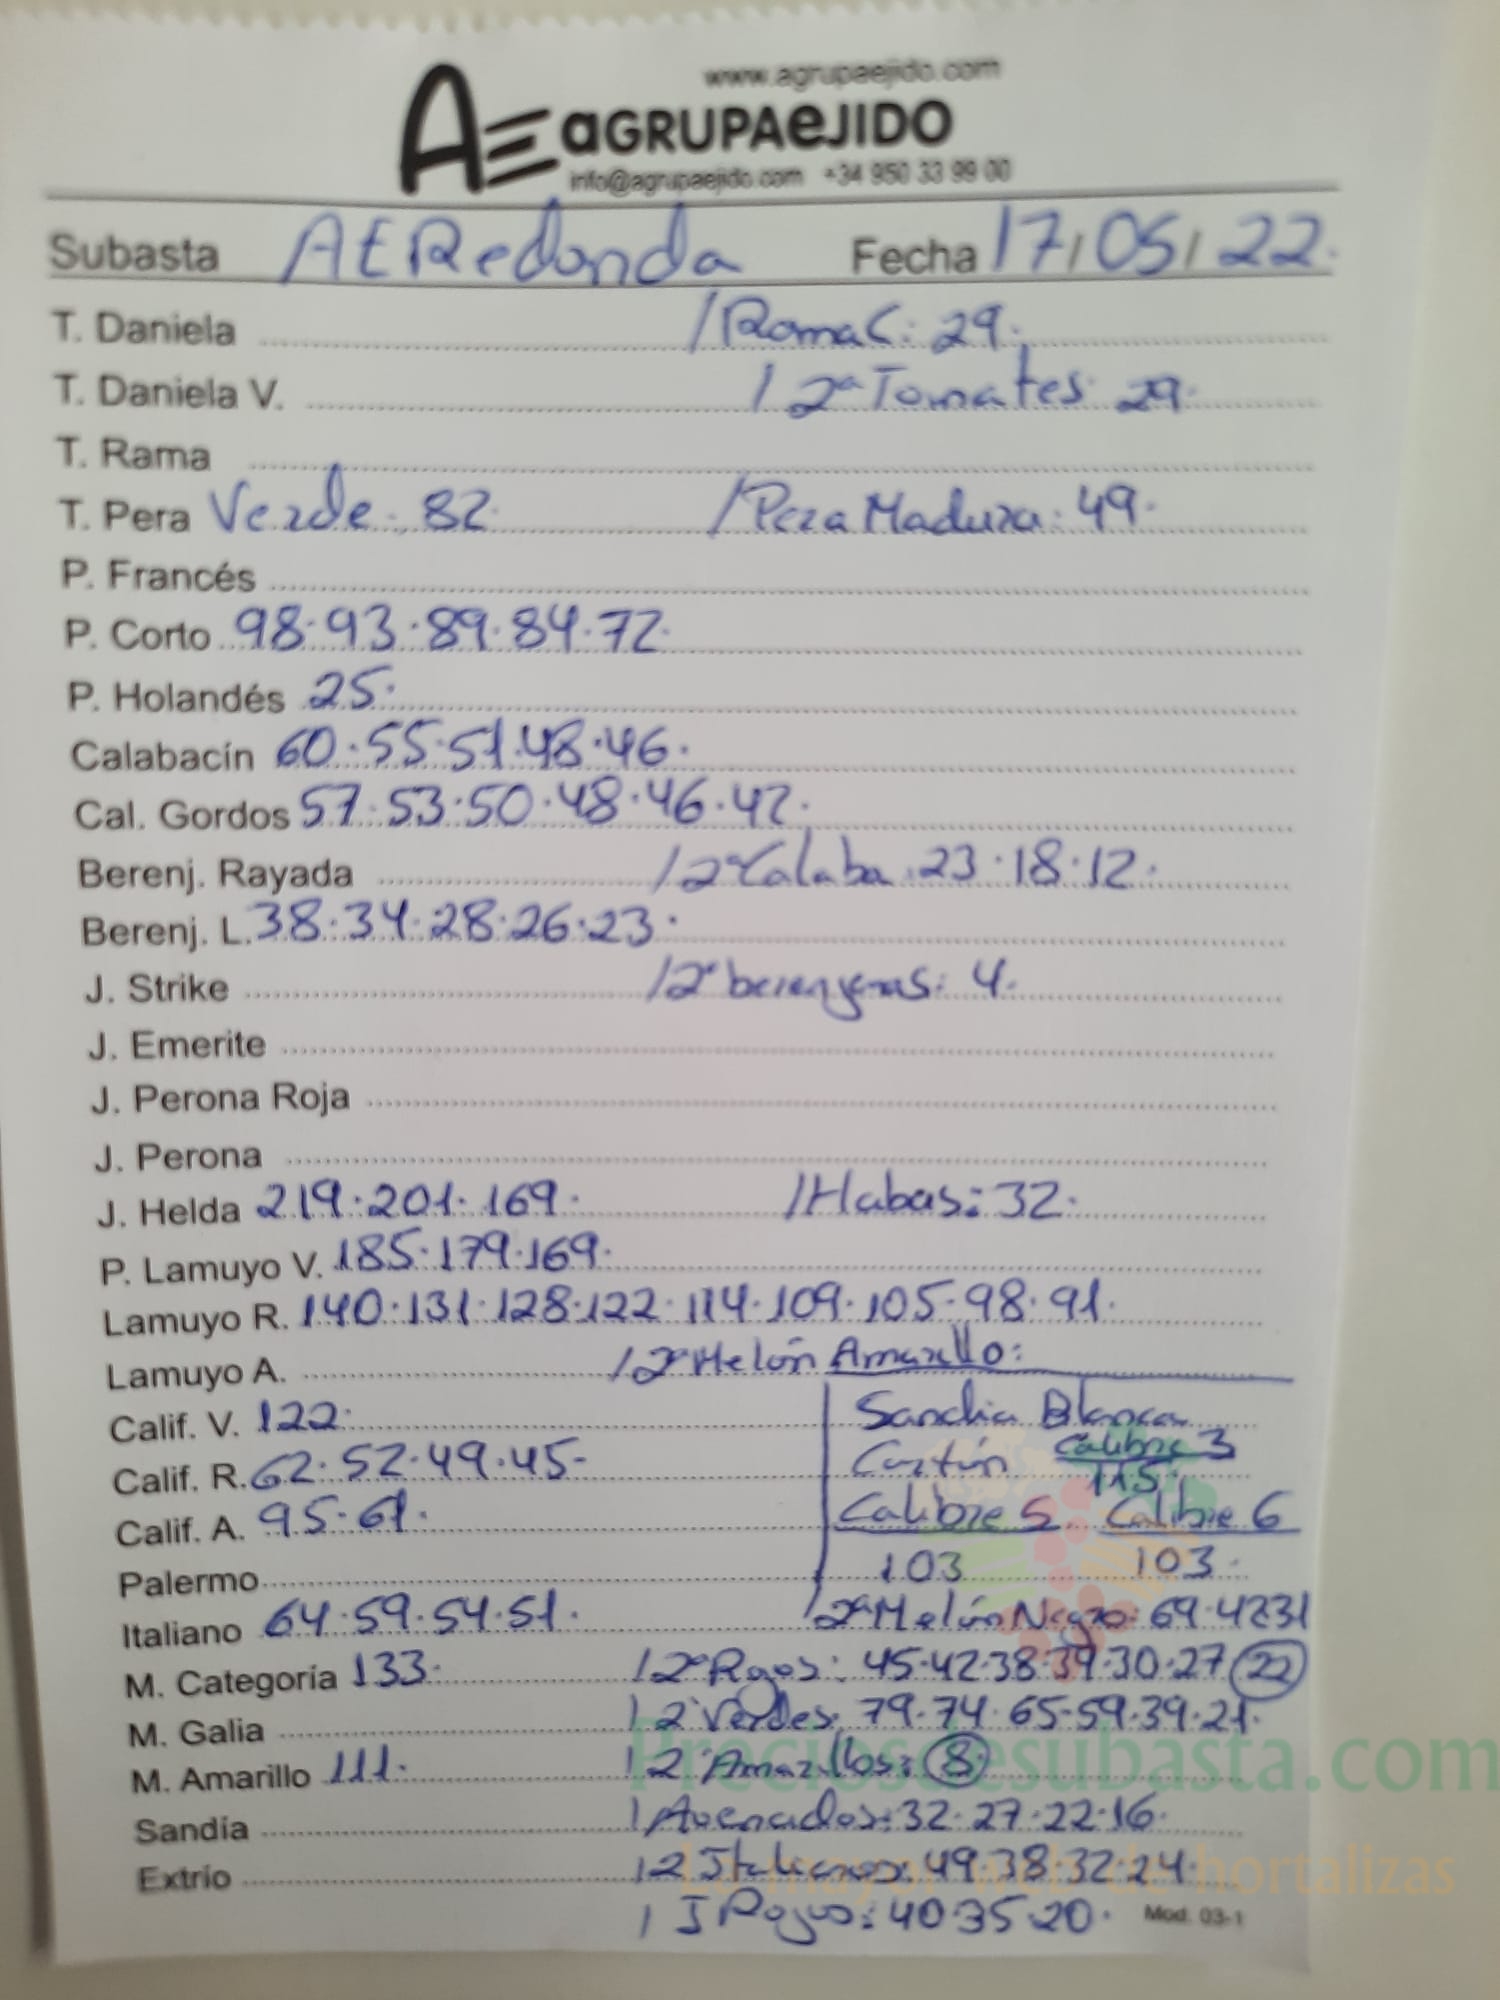 www.agrupaejido.com
AE aGRUPAeJIDO
info@agrupaejido.com +34 950 33 99 00
Subasta AE Redonda Fecha 17/05/22.
T. Daniela /Roma C: 29.
T. Daniela V. /2ª Tomates: 29.
T. Rama
T. Pera Verde: 82. /Pera Madura: 49.
P. Francés
P. Corto 98.93.89.84.72.
P. Holandés 25.
Calabacín 60.55.51.48.46.
Cal. Gordos 57.53.50.48.46.42.
Berenj. Rayada /2ª Calaba: 23.18.12.
Berenj. L. 38.34.28.26.23.
J. Strike /2ª berenjenas: 4.
J. Emerite
J. Perona Roja
J. Perona
J. Helda 219.201.169. /Habas: 32.
P. Lamuyo V. 185.179.169.
Lamuyo R. 140.131.128.122.114.109.105.98.91.
Lamuyo A. /2ª Melón Amarillo:
Calif. V. 122. Sandia Blanca
Calif. R. 62.52.49.45. Cartón Calibre 3
115.
Calif. A. 95.61. Calibre 5 Calibre 6
Palermo 103 103.
Italiano 64.59.54.51. /2ª Melón Negro: 69.42 31
M. Categoría 133. /2ª Rojos: 45.42.38.39.30.27 22
M. Galia /2ª Verdes: 79.74.65.59.39.21.
M. Amarillo 111. /2ª Amarillos: 8
Preciosdesubasta.com
Sandía /Asenados: 32.27.22.16.
Extrío /2 Italianos: 49.38.32.24.
de hortalizas
/I Rojos: 40.35.20. Mod. 03-1